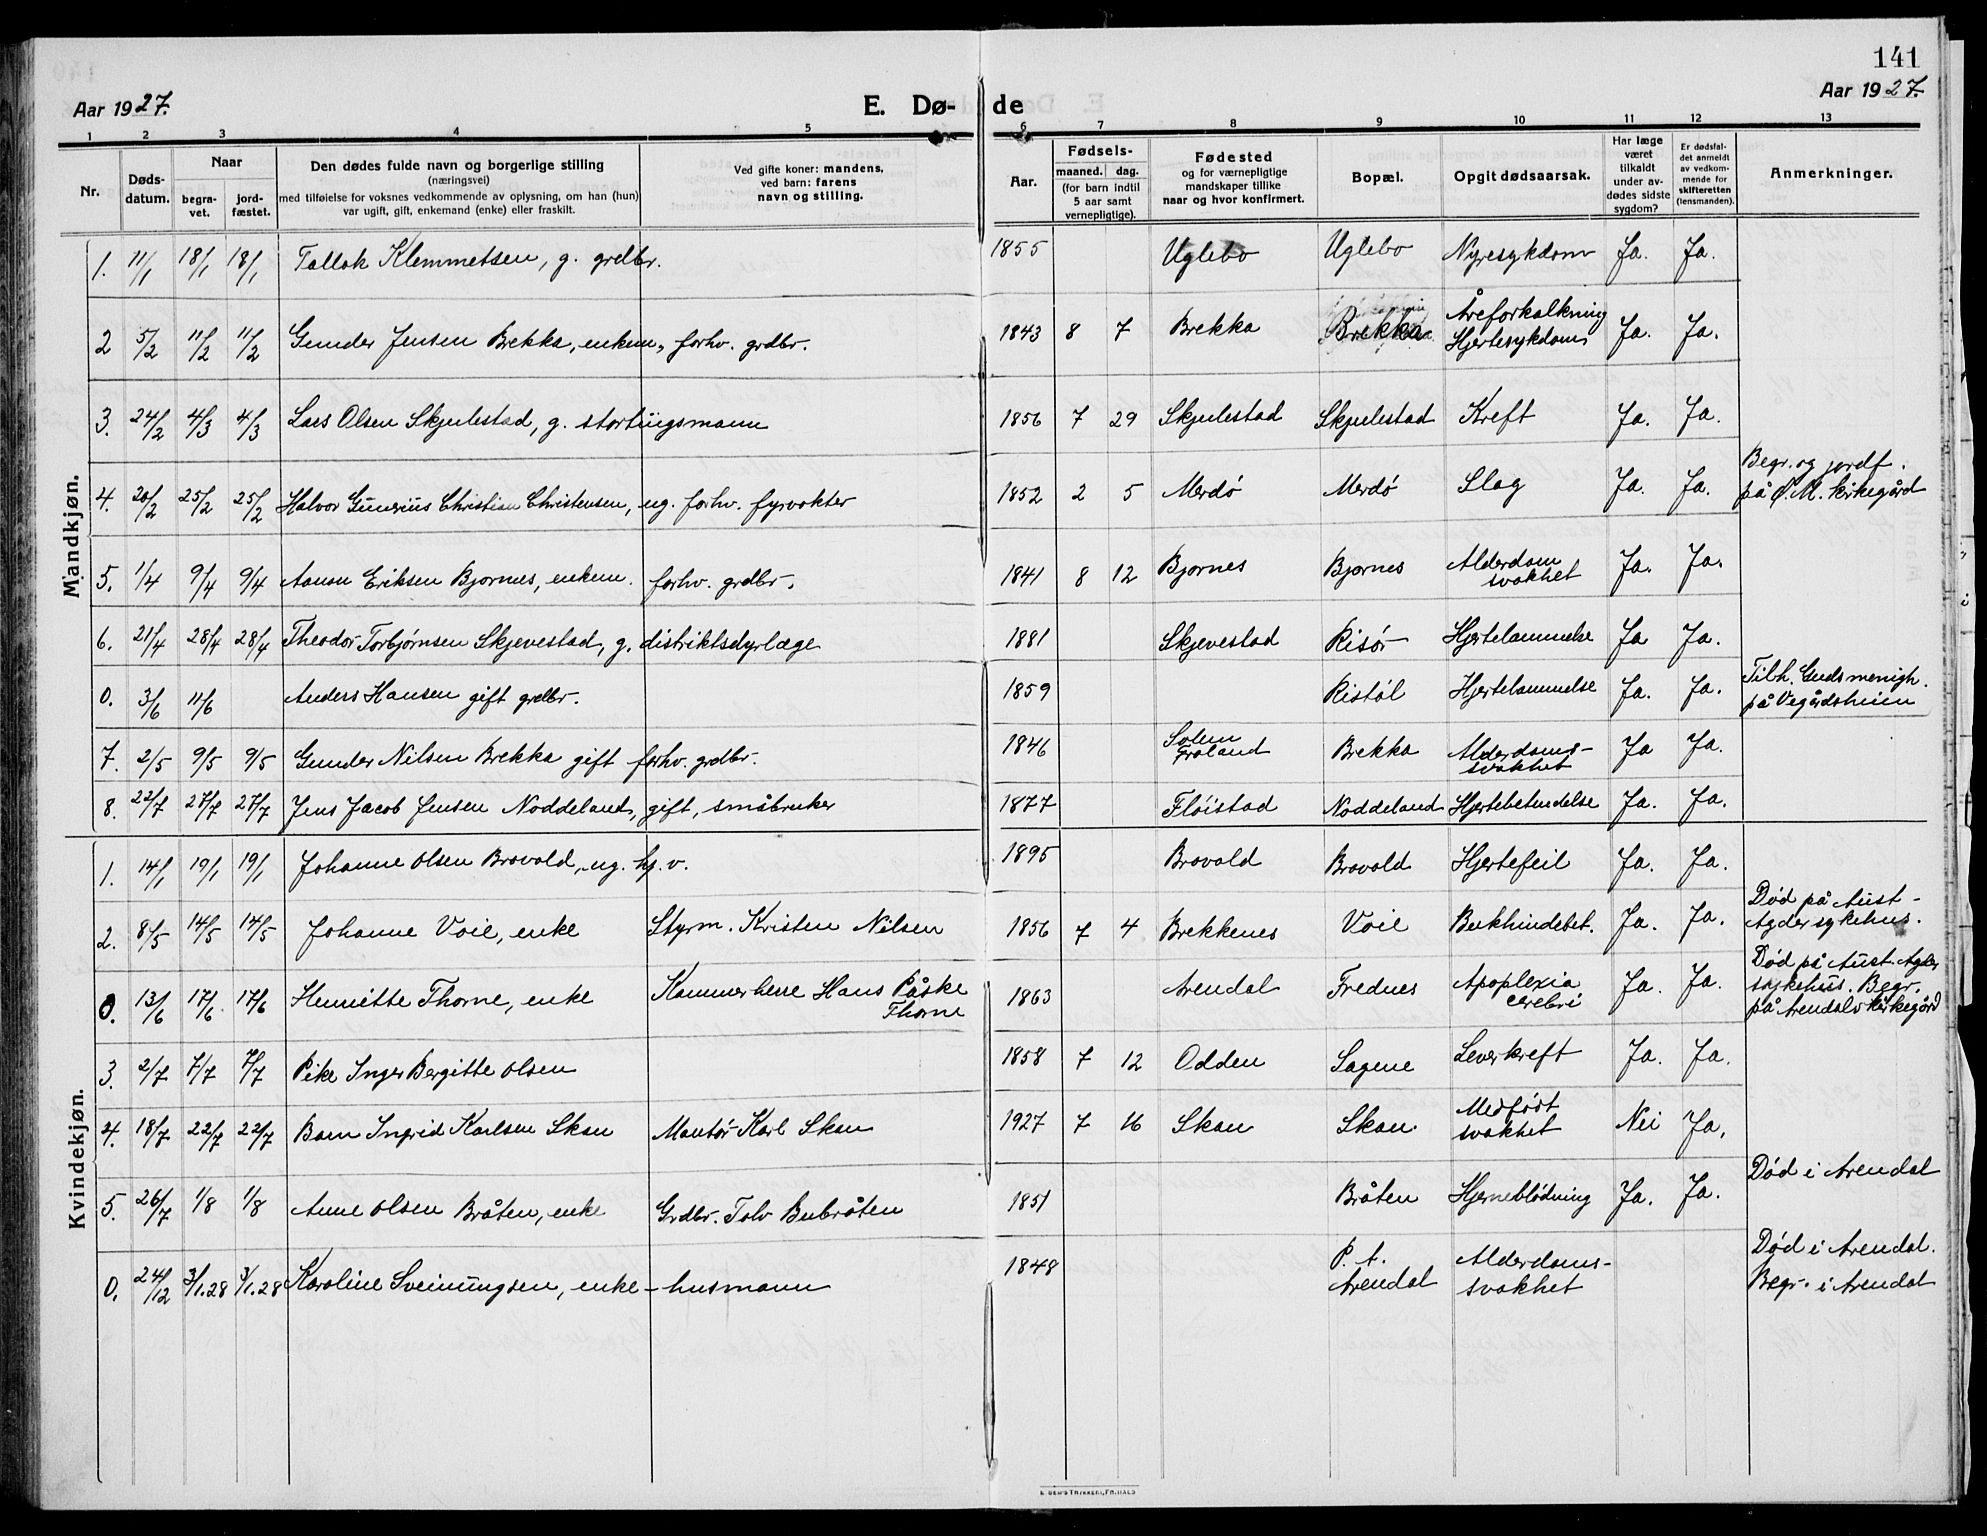 141
Aar 1927.
E. Dø- de
Aar 1927.
1 2 3 4 5 6 7 8 9 10 11 12 13
Nr.
Døds-
datum.
Naar
begra-
vet.
jord-
fæstet.
Den dødes fulde navn og borgerlige stilling
(næringsvei)
med tilføielse for voksnes vedkommende av oplysning, om han (hun)
var ugift, gift, enkemand (enke) eller fraskilt.
Ved gifte koner: mandens,
ved barn: farens
navn og stilling.
Aar.
Fødsels-
maaned. dag.
(for barn indtil
5 aar samt
vernepligtige).
Fødested
og for værnepligtige
mandskaper tillike
naar og hvor konfirmert.
Bopæl.
Opgit dødsaarsak.
Har læge
været
tilkaldt
under av-
dødes sidste
sygdom?
Er dødsfal-
det anmeldt
av vedkom-
mende for
skifteretten
(lensmanden).
Anmerkninger.
Mandkjøn.
1. 11/1 18/1 18/1 Tallak Klemmetsen, g. grdbr. 1855 Uglebo Uglebo Nyresykdom Ja. Ja.
2 5/2 11/2 11/2 Gunder Jensen Brekka, enkem., forhv. grdbr. 1843 8 7 Brekka Brekka Åreforkalkning Hjertesykdom Ja. Ja.
3. 24/2 4/3 4/3 Lars Olsen Skjulestad, g. stortingsmann 1856 7 29 Skjulestad Skjulestad Kreft Ja. Ja.
4. 20/2 25/2 25/2 Halvor Gunerius Christian Christensen, ug. forhv. fyrvokter 1852 2 5 Merdö Merdö Slag Ja. Ja. Begr. og jordf. på Ø. M. kirkegård
5. 1/4 9/4 9/4 Aanon Eriksen Bjornes, enkem. forhv. grdbr. 1841 8 12 Bjornes Bjornes Alderdom svakhet Ja. Ja.
6. 21/4 28/4 28/4 Theodor Torbjørnsen Skjevestad, g. distriktsdyrlæge 1881 Skjevestad Risör Hjertelammelse Ja Ja.
0. 3/6 11/6 Anders Hansen gift grdbr. 1859 Ristöl Hjertelammelse Ja. Ja. Tilh. Guds menigh. på Vegårdsheien
7. 2/5 9/5 9/5 Gunder Nilsen Brekka gift forhv. grdbr. 1846 Solem Froland Brekka Alderdoms- svakhet Ja Ja.
8. 22/7 27/7 27/7 Jens Jacob Jensen Noddeland, gift, småbruker 1877 Flöistad Noddeland Hjertebetendelse Ja. Ja.
Kvindekjøn.
1. 14/1 19/1 19/1 Johanne Olsen Brovold, ug. hj. v. 1895 Brovold Brovold Hjertefeil Ja. Ja.
2. 8/5 14/5 14/5 Johanne Voie, enke Styrm. Kristen Nilsen 1856 7 4 Brekkenes Voie Bukhindebet. Ja. Ja. Död på Aust- Agder sykehus.
0. 13/6 17/6 17/6 Henriette Thorne, enke Kammerherre Hans Påske Thorne 1863 Arendal Frednes Apoplexia cerebri Ja. Ja. Död på Aust. Agder sykehus. Begr. på Arendals kirkegård
3. 2/7 7/7 7/7 Pike Inger Bergitte Olsen 1858 7 12 Odden Sagene Leverkreft Ja. Ja.
4. 18/7 22/7 22/7 Barn Ingrid Karlsen Skan Montör Karl Skan 1927 7 16 Skan Skan Medfödt svakhet Nei Ja.
5. 26/7 1/8 1/8 Anne Olsen Bråten, enke Grdbr. Tolv Bubråten 1851 Bråten Hjerneblödning Ja. Ja. Död i Arendal
0. 24/12 3/1.28 3/1.28 Karoline Sveinungsen, enke - husmann 1848 P. t. Arendal Alderdoms- svakhet Död i Arendal. Begr. i Arendal